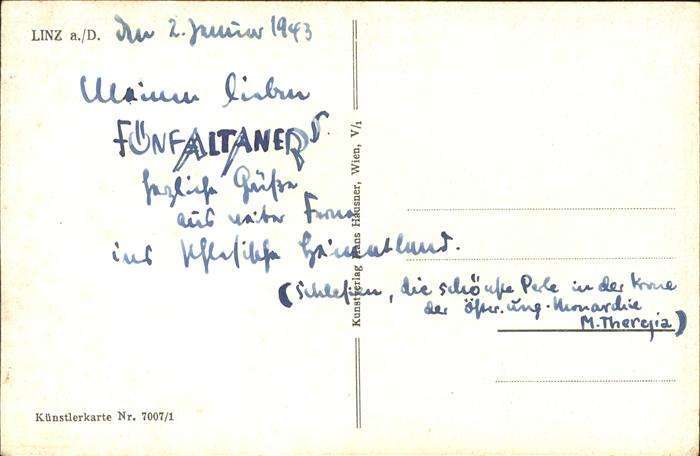 LINZ a./D. den 2. Januar 1943
Meinen lieben
FÜNFALTANERN
herzliche Grüße
aus weiter Ferne
ins schlesische Heimatland.
(Schlesien, die schönste Perle in der Krone
der öster. ung. Monarchie
M. Theresia)
Kunstverlag Hans Hausner, Wien, V/1
Künstlerkarte Nr. 7007/1